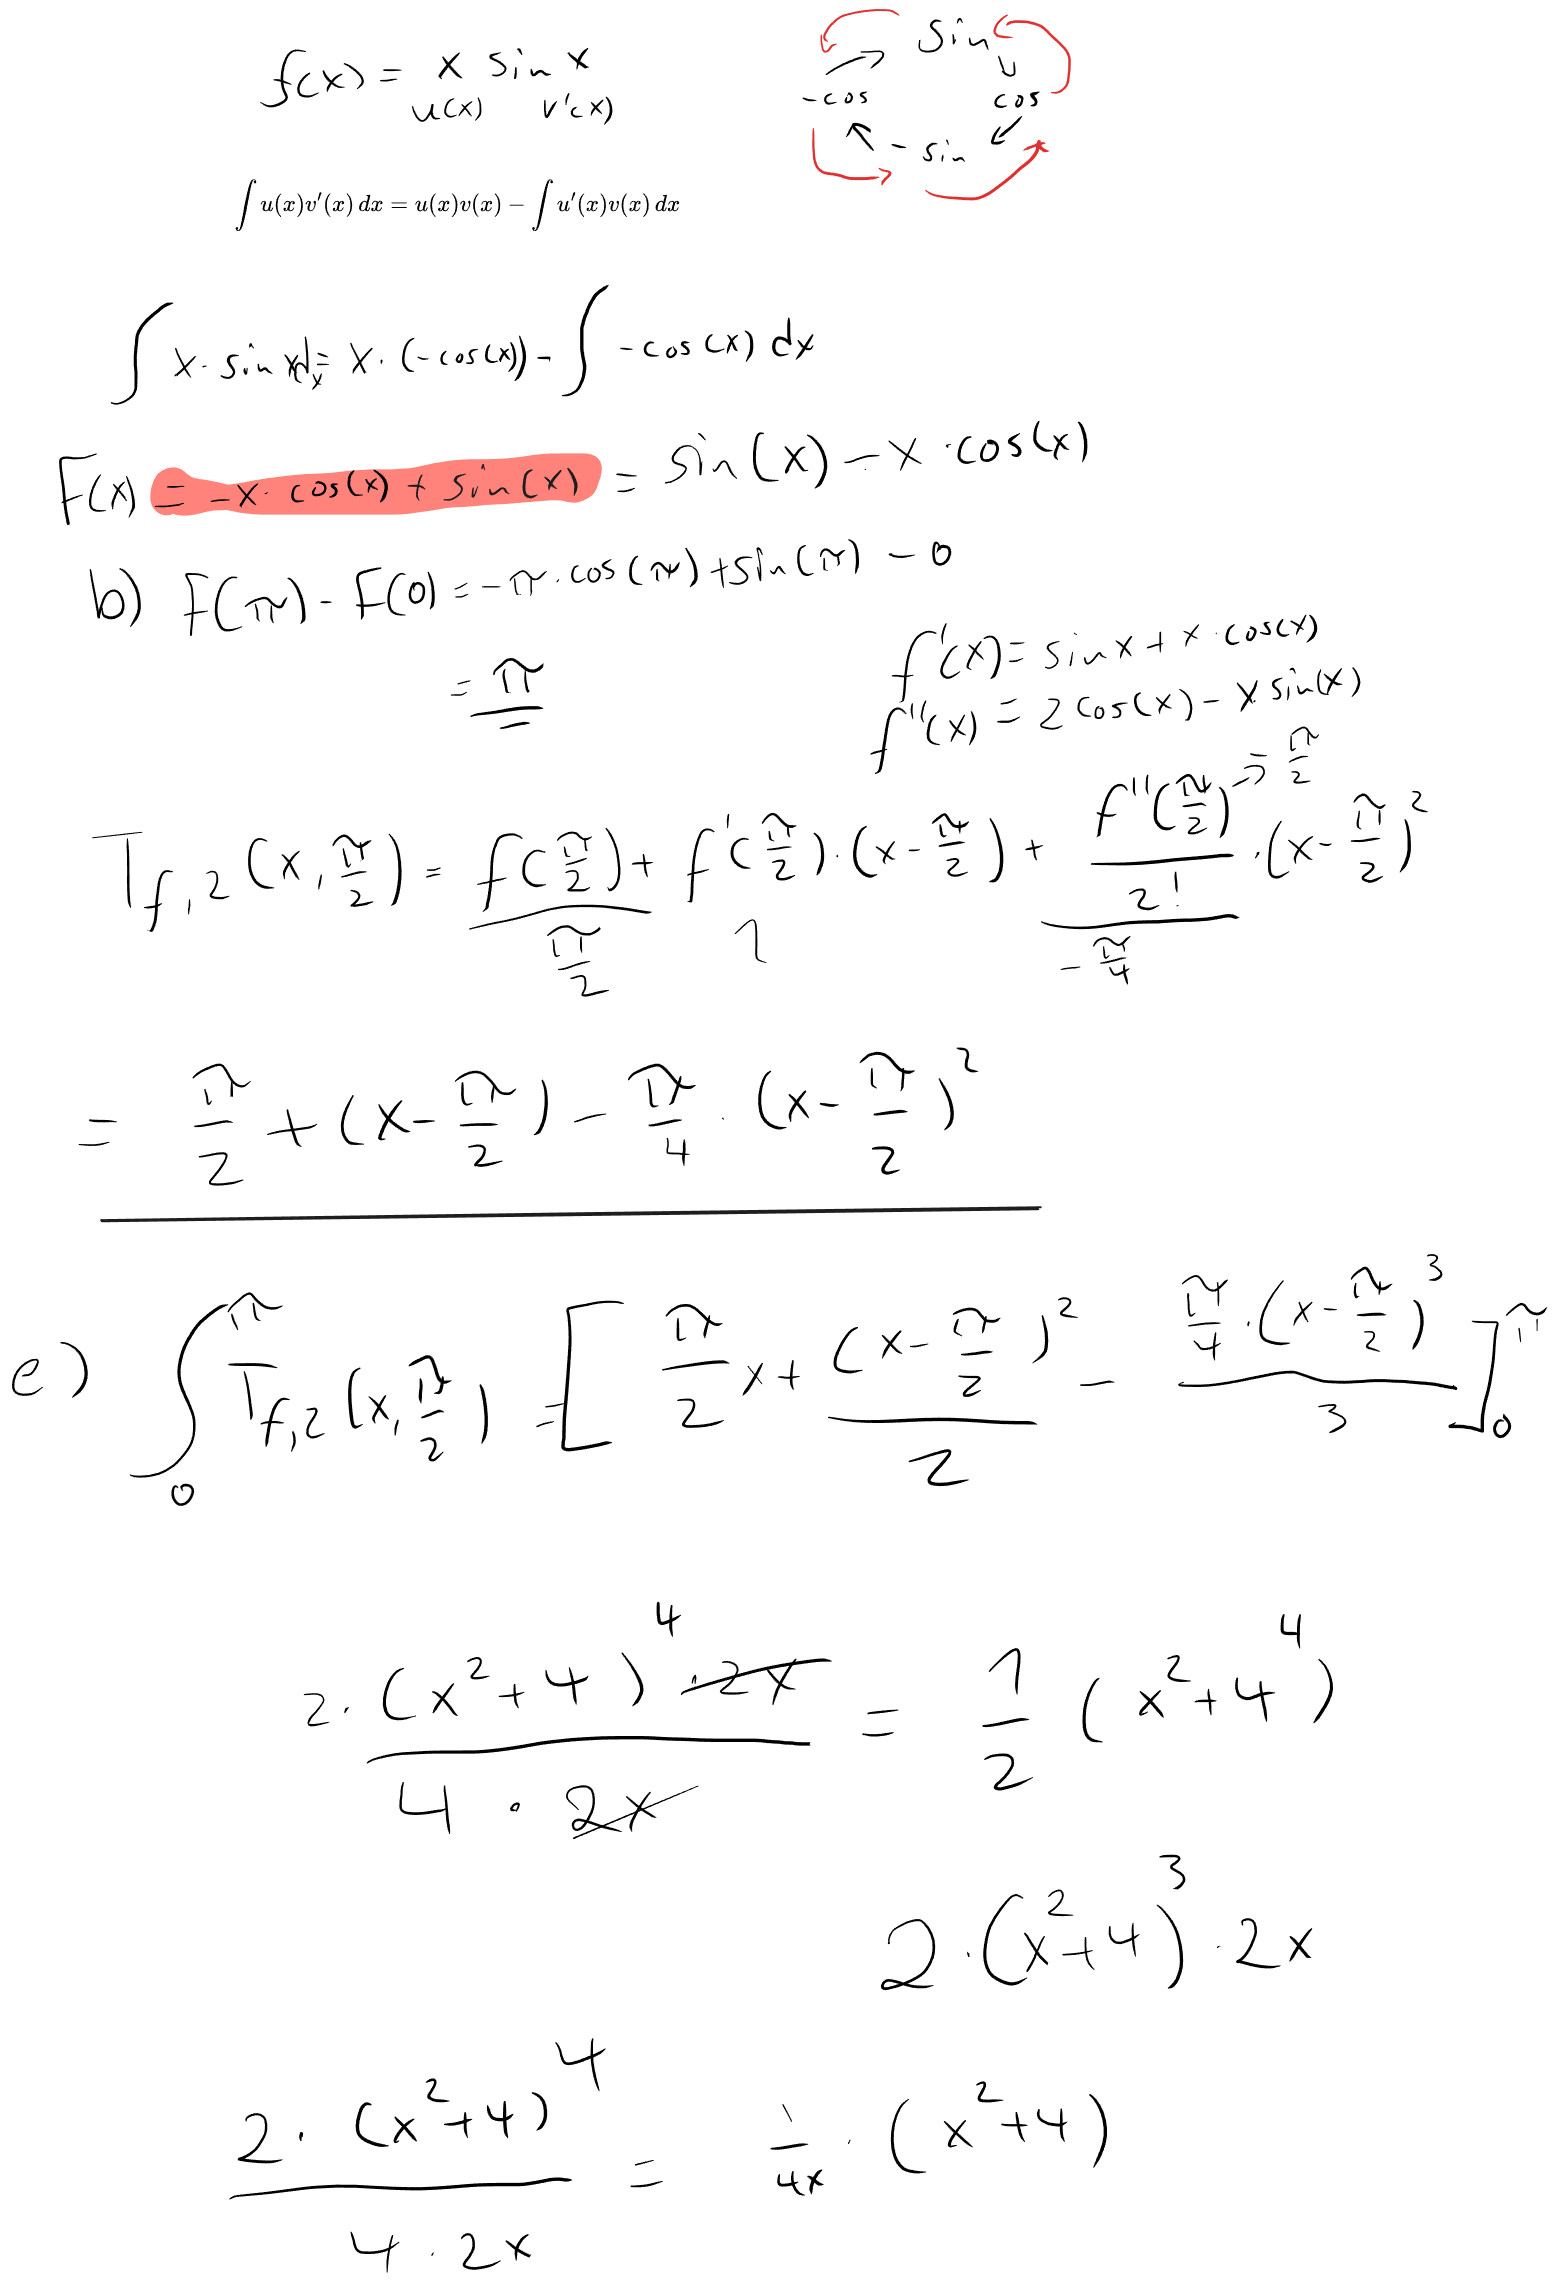 f(x) = x sin x
u(x) v'(x)
sin
-cos cos
- sin
∫ u(x)v'(x) dx = u(x)v(x) − ∫ u'(x)v(x) dx
∫ x · sin x dx = x · (-cos(x)) - ∫ -cos(x) dx
F(x) = -x · cos(x) + sin(x) = sin(x) - x · cos(x)
b) F(π) - F(0) = -π · cos(π) + sin(π) - 0
= π
f'(x) = sin x + x · cos(x)
f''(x) = 2 cos(x) - x sin(x)
T_{f,2}(x, π/2) = f(π/2) + f'(π/2) · (x - π/2) + f''(π/2)/2! · (x - π/2)²
π/2 1 -π/4
= π/2 + (x - π/2) - π/4 · (x - π/2)²
e) ∫₀^π T_{f,2}(x, π/2) = [π/2 x + (x - π/2)²/2 - π/4 · (x - π/2)³/3]₀^π
2 · (x² + 4)⁴ · 2x / 4 · 2x = 1/2 (x² + 4⁴)
2 · (x² + 4)³ · 2x
2 · (x² + 4)⁴ / 4 · 2x = 1/4x · (x² + 4)